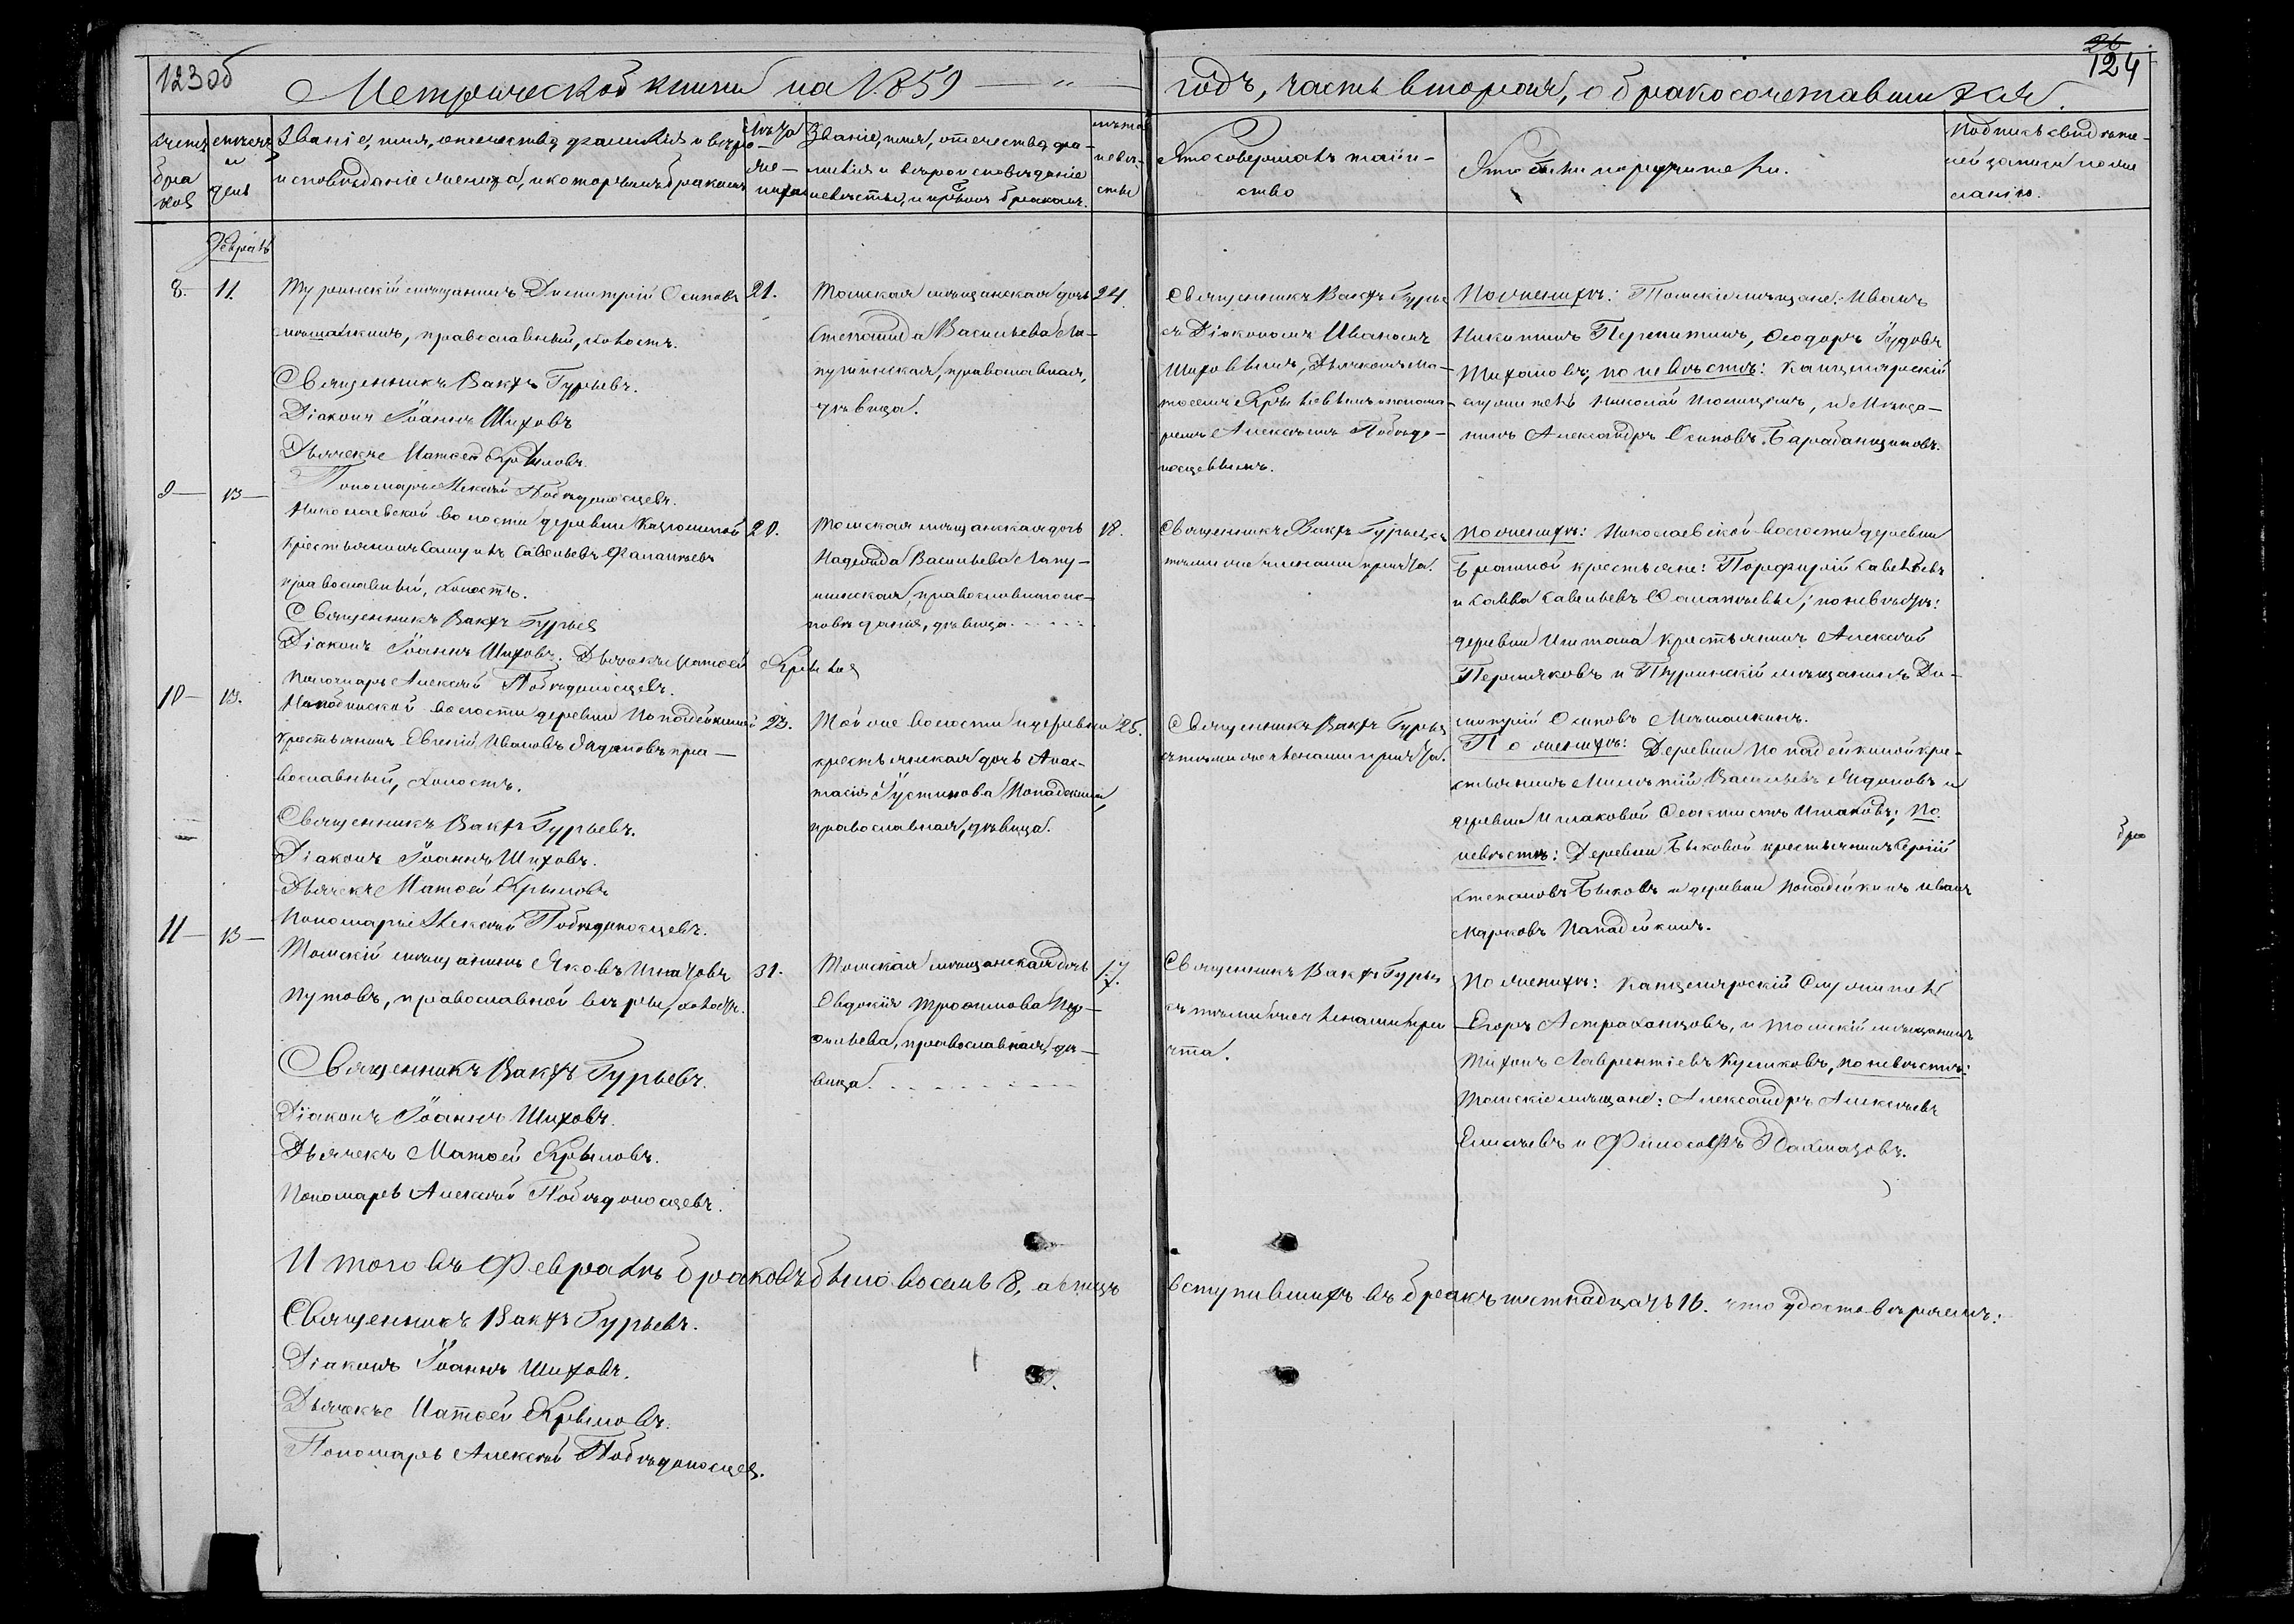 123об
Метрической книги на 1859 — " —
годъ, часть вторая, о бракосочетавшихся.
26
124
Счетъ браковъ
Мѣсяцъ и день
Званіе, имя, отечество, фамилія и вѣроисповѣданіе жениха, и которымъ бракомъ
Лѣта жениха
Званіе, имя, отечество, фамилія и вѣроисповѣданіе невѣсты, и которымъ бракомъ.
лѣта невѣсты
Кто совершалъ таинство
Кто были поручители.
Подпись свидѣтелей записи по желанію.
Февраль
8.
11.
Туринскій мѣщанинъ Димитрій Осиповъ
Мѣшалкинъ, православный, холостъ.
Священникъ Вакхъ Гурьевъ.
Діаконъ Іоаннъ Шиховъ
Дьячекъ Матѳей Крыловъ.
Пономарь Алексѣй Побѣдоносцевъ.
21.
Томская мѣщанская дочь
Степанида Васильева Ла-
пухинская, православная,
дѣвица.
24.
Священникъ Вакхъ Гурьевъ
съ Діакономъ Иваномъ
Шиховымъ, Дьячкомъ Ма-
тѳеемъ Крыловымъ и понома-
ремъ Алексѣемъ Побѣдо-
носцевымъ.
По женихѣ: Томскіе мѣщане: Иванъ
Никитинъ Перепитинъ, Ѳеодоръ
Тихановъ; по невѣстѣ: Канцелярскій
служитель Николай, и Мѣща-
нинъ Александръ Осиповъ Барабанщиковъ.
9 —
13 —
Николаевской волости деревни
крестьянинъ Самуилъ Савельевъ
православный, холостъ.
Священникъ Вакхъ Гурьев
Діаконъ Іоаннъ Шиховъ. Дьячекъ Матѳей Крылов
Пономарь Алексѣй Побѣдоносцевъ.
20.
Томская мѣщанская дочь
Надежда Васильева Лапу-
хинская, православнаго ис-
повѣданія, дѣвица.
18.
Священникъ Вакхъ Гурьевъ съ
тѣми же членами причта.
По женихѣ: Николаевской волости деревни
крестьяне: Порфирій Савельевъ
и Савва Савельевъ; по невѣстѣ:
деревни Иштана крестьянинъ Алексѣй
Перемяковъ и Туринскій мѣщанинъ Ди-
митрій Осиповъ Мѣшалкинъ.
10 —
13.
волости деревни Попадейкиной
крестьянинъ Евгеній Ивановъ пра-
вославный, холостъ.
Священникъ Вакхъ Гурьевъ.
Діаконъ Іоаннъ Шиховъ.
Дьячекъ Матѳей Крыловъ
Пономарь Алексѣй Побѣдоносцевъ.
23.
Той же волости и деревни
крестьянская дочь Анас-
тасія Іустинова Попадейкина,
православная, дѣвица.
25.
Священникъ Вакхъ Гурьев
съ тѣми же членами причта.
По женихѣ: Деревни Попадейкиной кре-
стьянинъ Васильевъ и
деревни Ишаковой Ѳеоктистъ Ишаковъ; По
невѣстѣ: Деревни Быковой крестьянинъ Сергій
Степановъ Быковъ и деревни Попадейкинъ Иванъ
Марковъ Попадейкинъ.
бра
11 —
13 —
Томскій мѣщанинъ Яковъ Игнатовъ
Путовъ, православной вѣры, холостъ.
Священникъ Вакхъ Гурьевъ.
Діаконъ Іоаннъ Шиховъ.
Дьячекъ Матѳей Крыловъ.
Пономарь Алексѣй Побѣдоносцевъ.
31.
Томская мѣщанская дочь
Евдокія Трофимова Пор-
фильева, православная, дѣ-
вица.
17.
Священникъ Вакхъ Гурьев
съ тѣми же членами при-
чта.
По женихѣ: Канцелярскій Служитель
Егоръ Астраханцовъ, и томскій мѣщанинъ
Тихонъ Лаврентіевъ Куликовъ, по невѣстѣ:
Томскіе мѣщане: Александръ Алексѣевъ
Елисѣевъ и Философъ Пахмазовъ.
Итого въ Февралѣ браковъ было восемь 8, а лицъ вступившихъ въ бракъ шестнадцать 16. что удостовѣряемъ:
Священникъ Вакхъ Гурьевъ.
Діаконъ Іоаннъ Шиховъ.
Дьячекъ Матѳей Крыловъ.
Пономарь Алексѣй Побѣдоносцев.